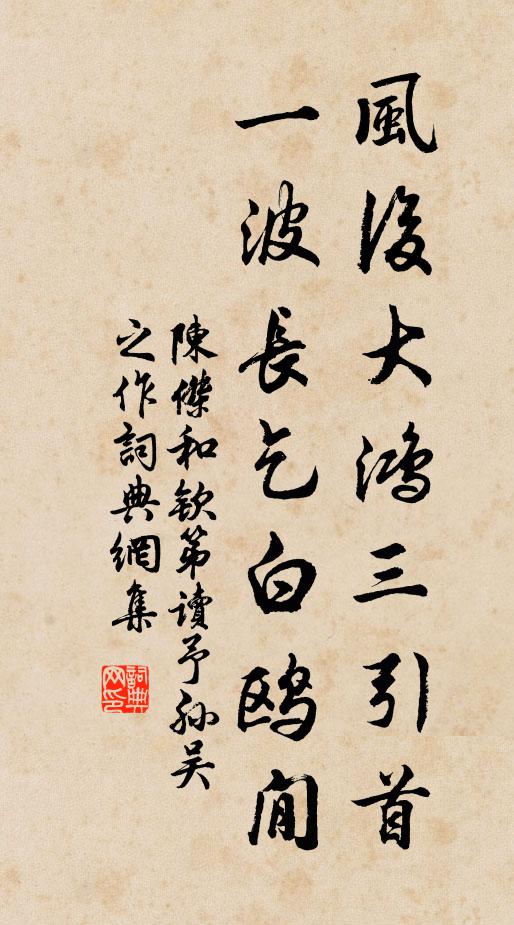 風後大鴻三引首
一波長乞白鷗閒
陳傑和欽第讀予孫吴
之作詞典網集
詞典
网印